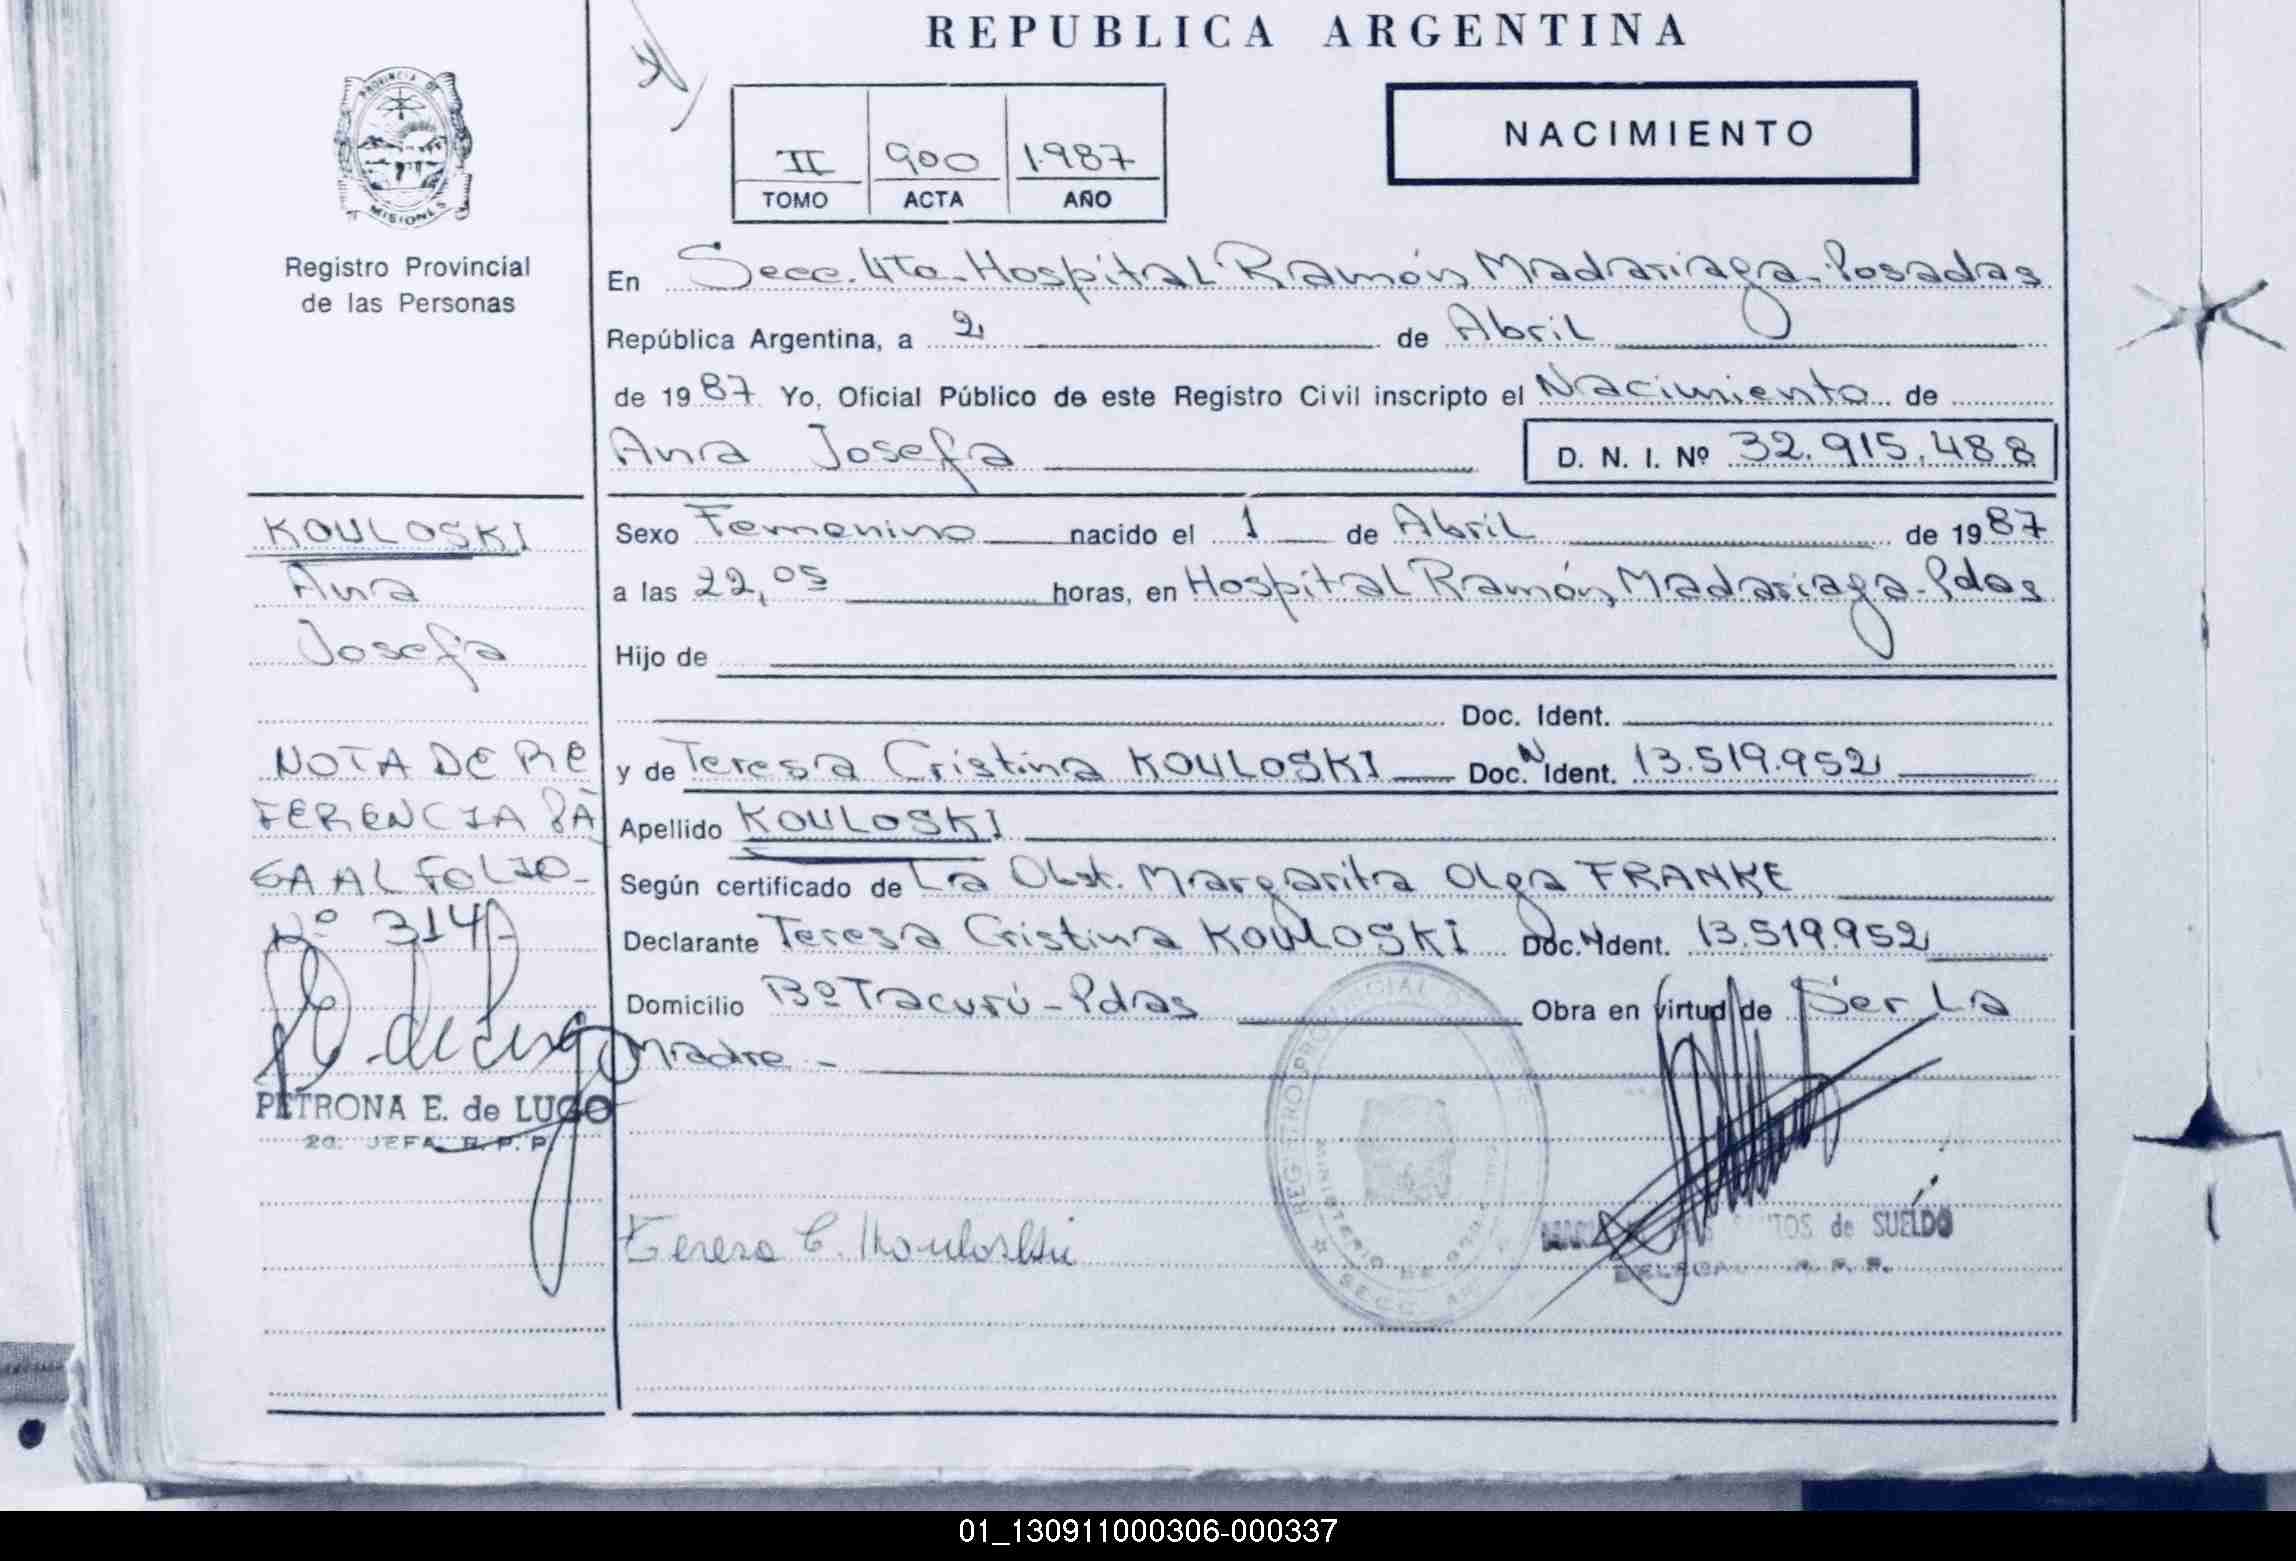 REPUBLICA ARGENTINA
PROVINCIA DE
MISIONES
Registro Provincial
de las Personas
II 900 1.987
TOMO ACTA AÑO
NACIMIENTO
En Secc. 4ta. Hospital Ramón Madariaga - Posadas
República Argentina, a 2 de Abril
de 1987 Yo, Oficial Público de este Registro Civil inscripto el Nacimiento de
Ana Josefa D. N. I. Nº 32.915.488
KOULOSKI
Ana
Josefa
Sexo Femenino nacido el 1 de Abril de 1987
a las 22,05 horas, en Hospital Ramón Madariaga - Pdas
Hijo de
Doc. Ident.
y de Teresa Cristina KOULOSKI Doc. N Ident. 13.519.952
Apellido KOULOSKI
Según certificado de La Obst. Margarita Olga FRANKE
Declarante Teresa Cristina KOULOSKI Doc. N Ident. 13.519.952
Domicilio Bº Tacurú - Pdas Obra en virtud de Ser La
Madre -
NOTA DE RE
FERENCIA PA
SA AL FOLIO -
Nº 314A
PETRONA E. de LUGO
2a. JEFA R. P. P.
Teresa C. Kouloski
REGISTRO PROVINCIAL
MINISTERIO DE
SECC. 4ª
de SUELDO
R. P. P.
01_130911000306-000337